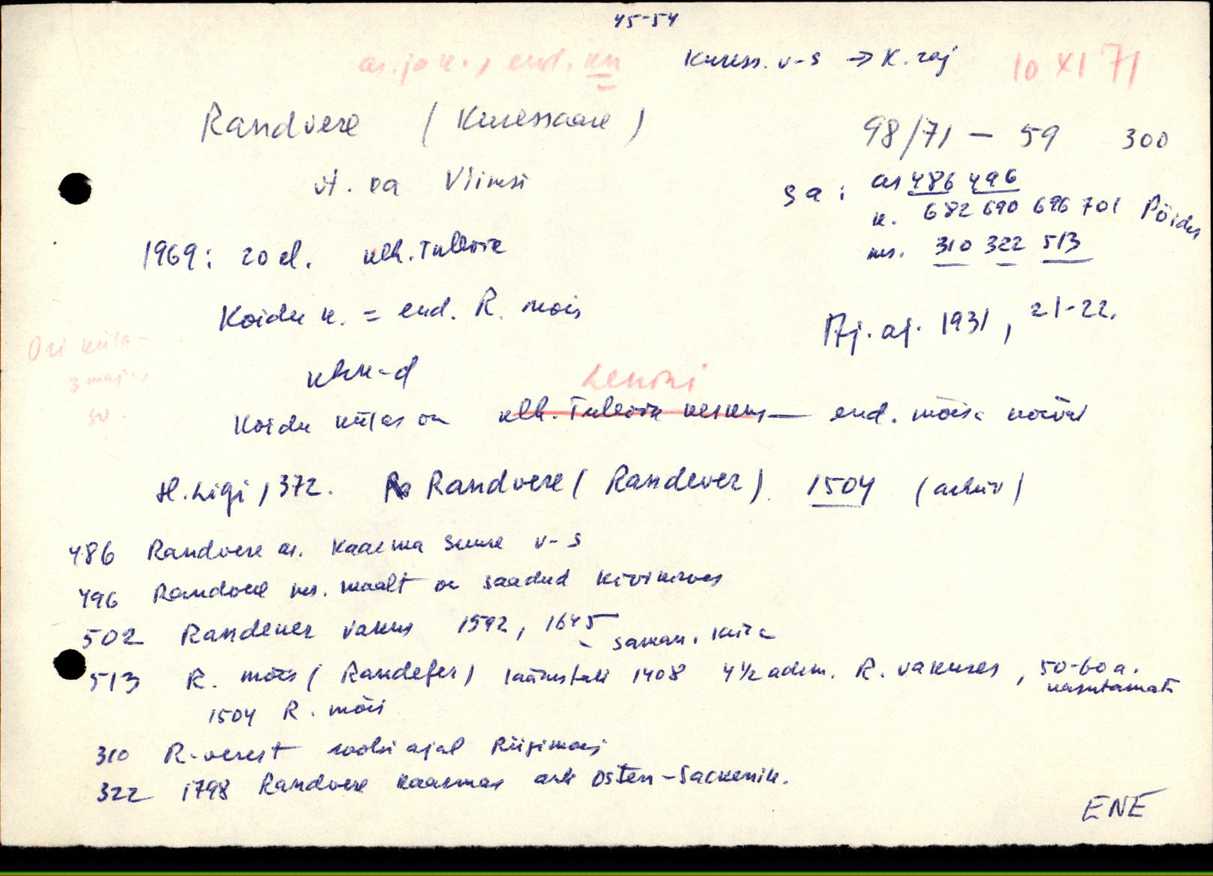 45-54
as. ja k., end. kn Kuress. v-s → K. raj 10 XI 71
Randvere (Kuressaare) 98/71 — 59 300
vt. ka Viimsi
Sa: as 486 496
k. 682 690 696 701 Pöide
ms. 310 322 513
1969: 20 el.
Koidu k. = end. R. mõis
Aj. aj. 1931, 21-22.
Koidu külas on end. mõisa
H. Ligi, 372. Randvere (Randever) 1504 (arhiiv)
486 Randvere as. Kaarma Suure v-s
496 Randvere ms. maalt on saadud kivikirves
502 Randever vakus 1592, 1645
513 R. mõis (Randefer) läänistati 1408 4 1/2 adm. R. vakuses, 50-60 a. kasutamata
1504 R. mõis
310 R-verest rootsi ajal Riigimõis
322 1798 Randvere Kaarmas Osten-Sackenile.
ENE